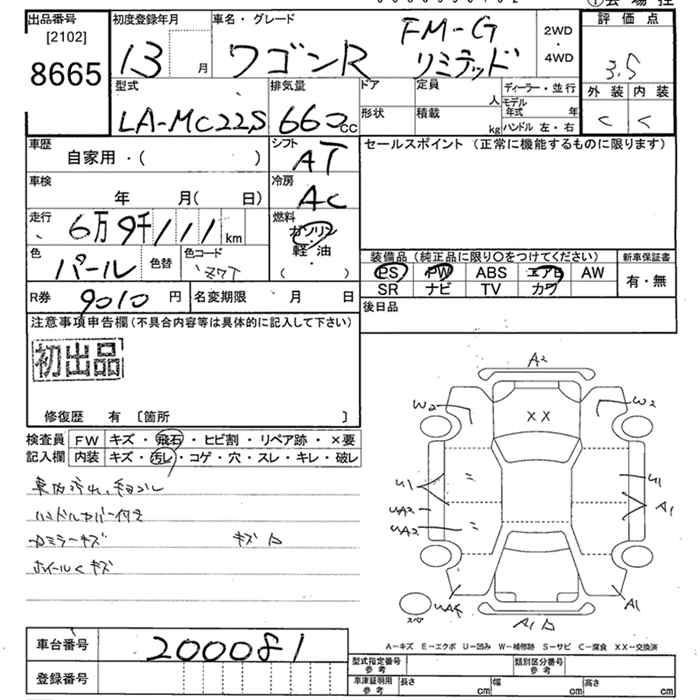 出品番号 [2102] 8665
初度登録年月 13 月
車名・グレード ワゴンR FM-G リミテッド
2WD ・ 4WD
評価点 3.5
外装 内装
C C
型式 LA-MC22S
排気量 660 cc
ドア 定員 人
形状 積載 kg
ディーラー・並行
モデル年式 年
ハンドル 左・右
車歴 自家用・( )
シフト AT
セールスポイント (正常に機能するものに限ります)
車検 年 月( 日)
冷房 AC
走行 6万9千111 km
燃料 ガソリン 軽・油 ( ・ )
色 パール 色替 色コード Z7T
装備品 (純正品に限り○をつけてください) 新車保証書
PS PW ABS エアB AW 有・無
SR ナビ TV カワ
R券 9010 円 名変期限 月 日
後日品
注意事項申告欄(不具合内容等は具体的に記入して下さい)
初出品
修復歴 有 [箇所 ]
検査員 FW キズ・飛石・ヒビ割・リペア跡・×要
記入欄 内装 キズ・汚レ・コゲ・穴・スレ・キレ・破レ
ハンドルカバー付き
ホイールキズ
A2
W2 W2
XX
U1 U1
UA2 A1
UA2
A1
A1
スペア
A-キズ E-エクボ U-凹み W-補修跡 S-サビ C-腐食 XX-交換済
車台番号 200081
登録番号
型式指定番号 参考 類別区分番号 参考
車庫証明用 参考 長さ cm 幅 cm 高さ cm